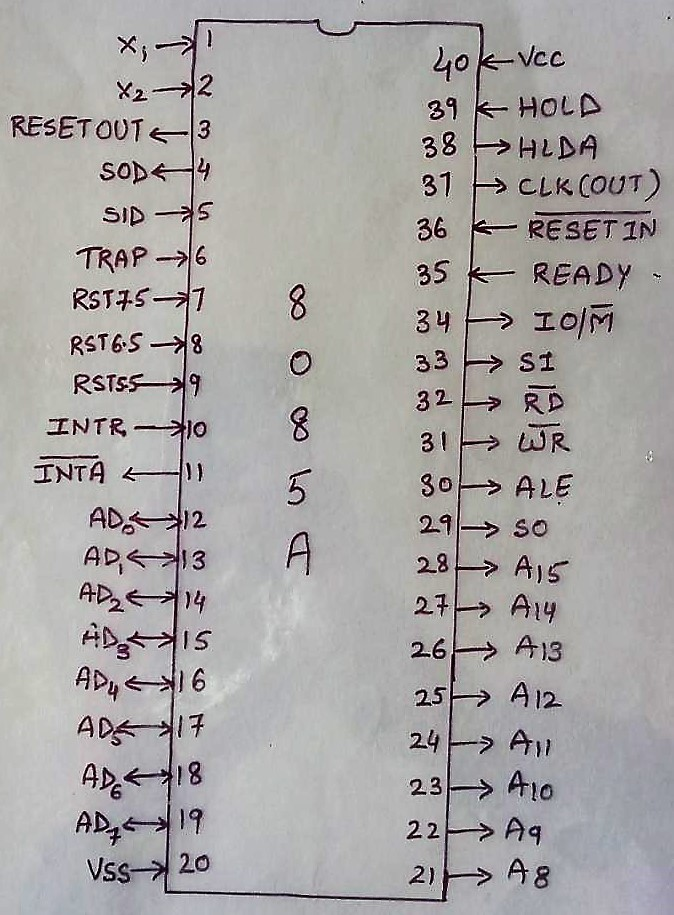 X₁ → 1
X₂ → 2
RESET OUT ← 3
SOD ← 4
SID → 5
TRAP → 6
RST7.5 → 7
RST6.5 → 8
RST5.5 → 9
INTR → 10
I̅N̅T̅A̅ ← 11
AD₀ ↔ 12
AD₁ ↔ 13
AD₂ ↔ 14
AD₃ ↔ 15
AD₄ ↔ 16
AD₅ ↔ 17
AD₆ ↔ 18
AD₇ ↔ 19
VSS → 20
8
0
8
5
A
40 ← VCC
39 ← HOLD
38 → HLDA
37 → CLK(OUT)
36 ← R̅E̅S̅E̅T̅ I̅N̅
35 ← READY
34 → IO/M̅
33 → S1
32 → R̅D̅
31 → W̅R̅
30 → ALE
29 → SO
28 → A15
27 → A14
26 → A13
25 → A12
24 → A11
23 → A10
22 → A9
21 → A8